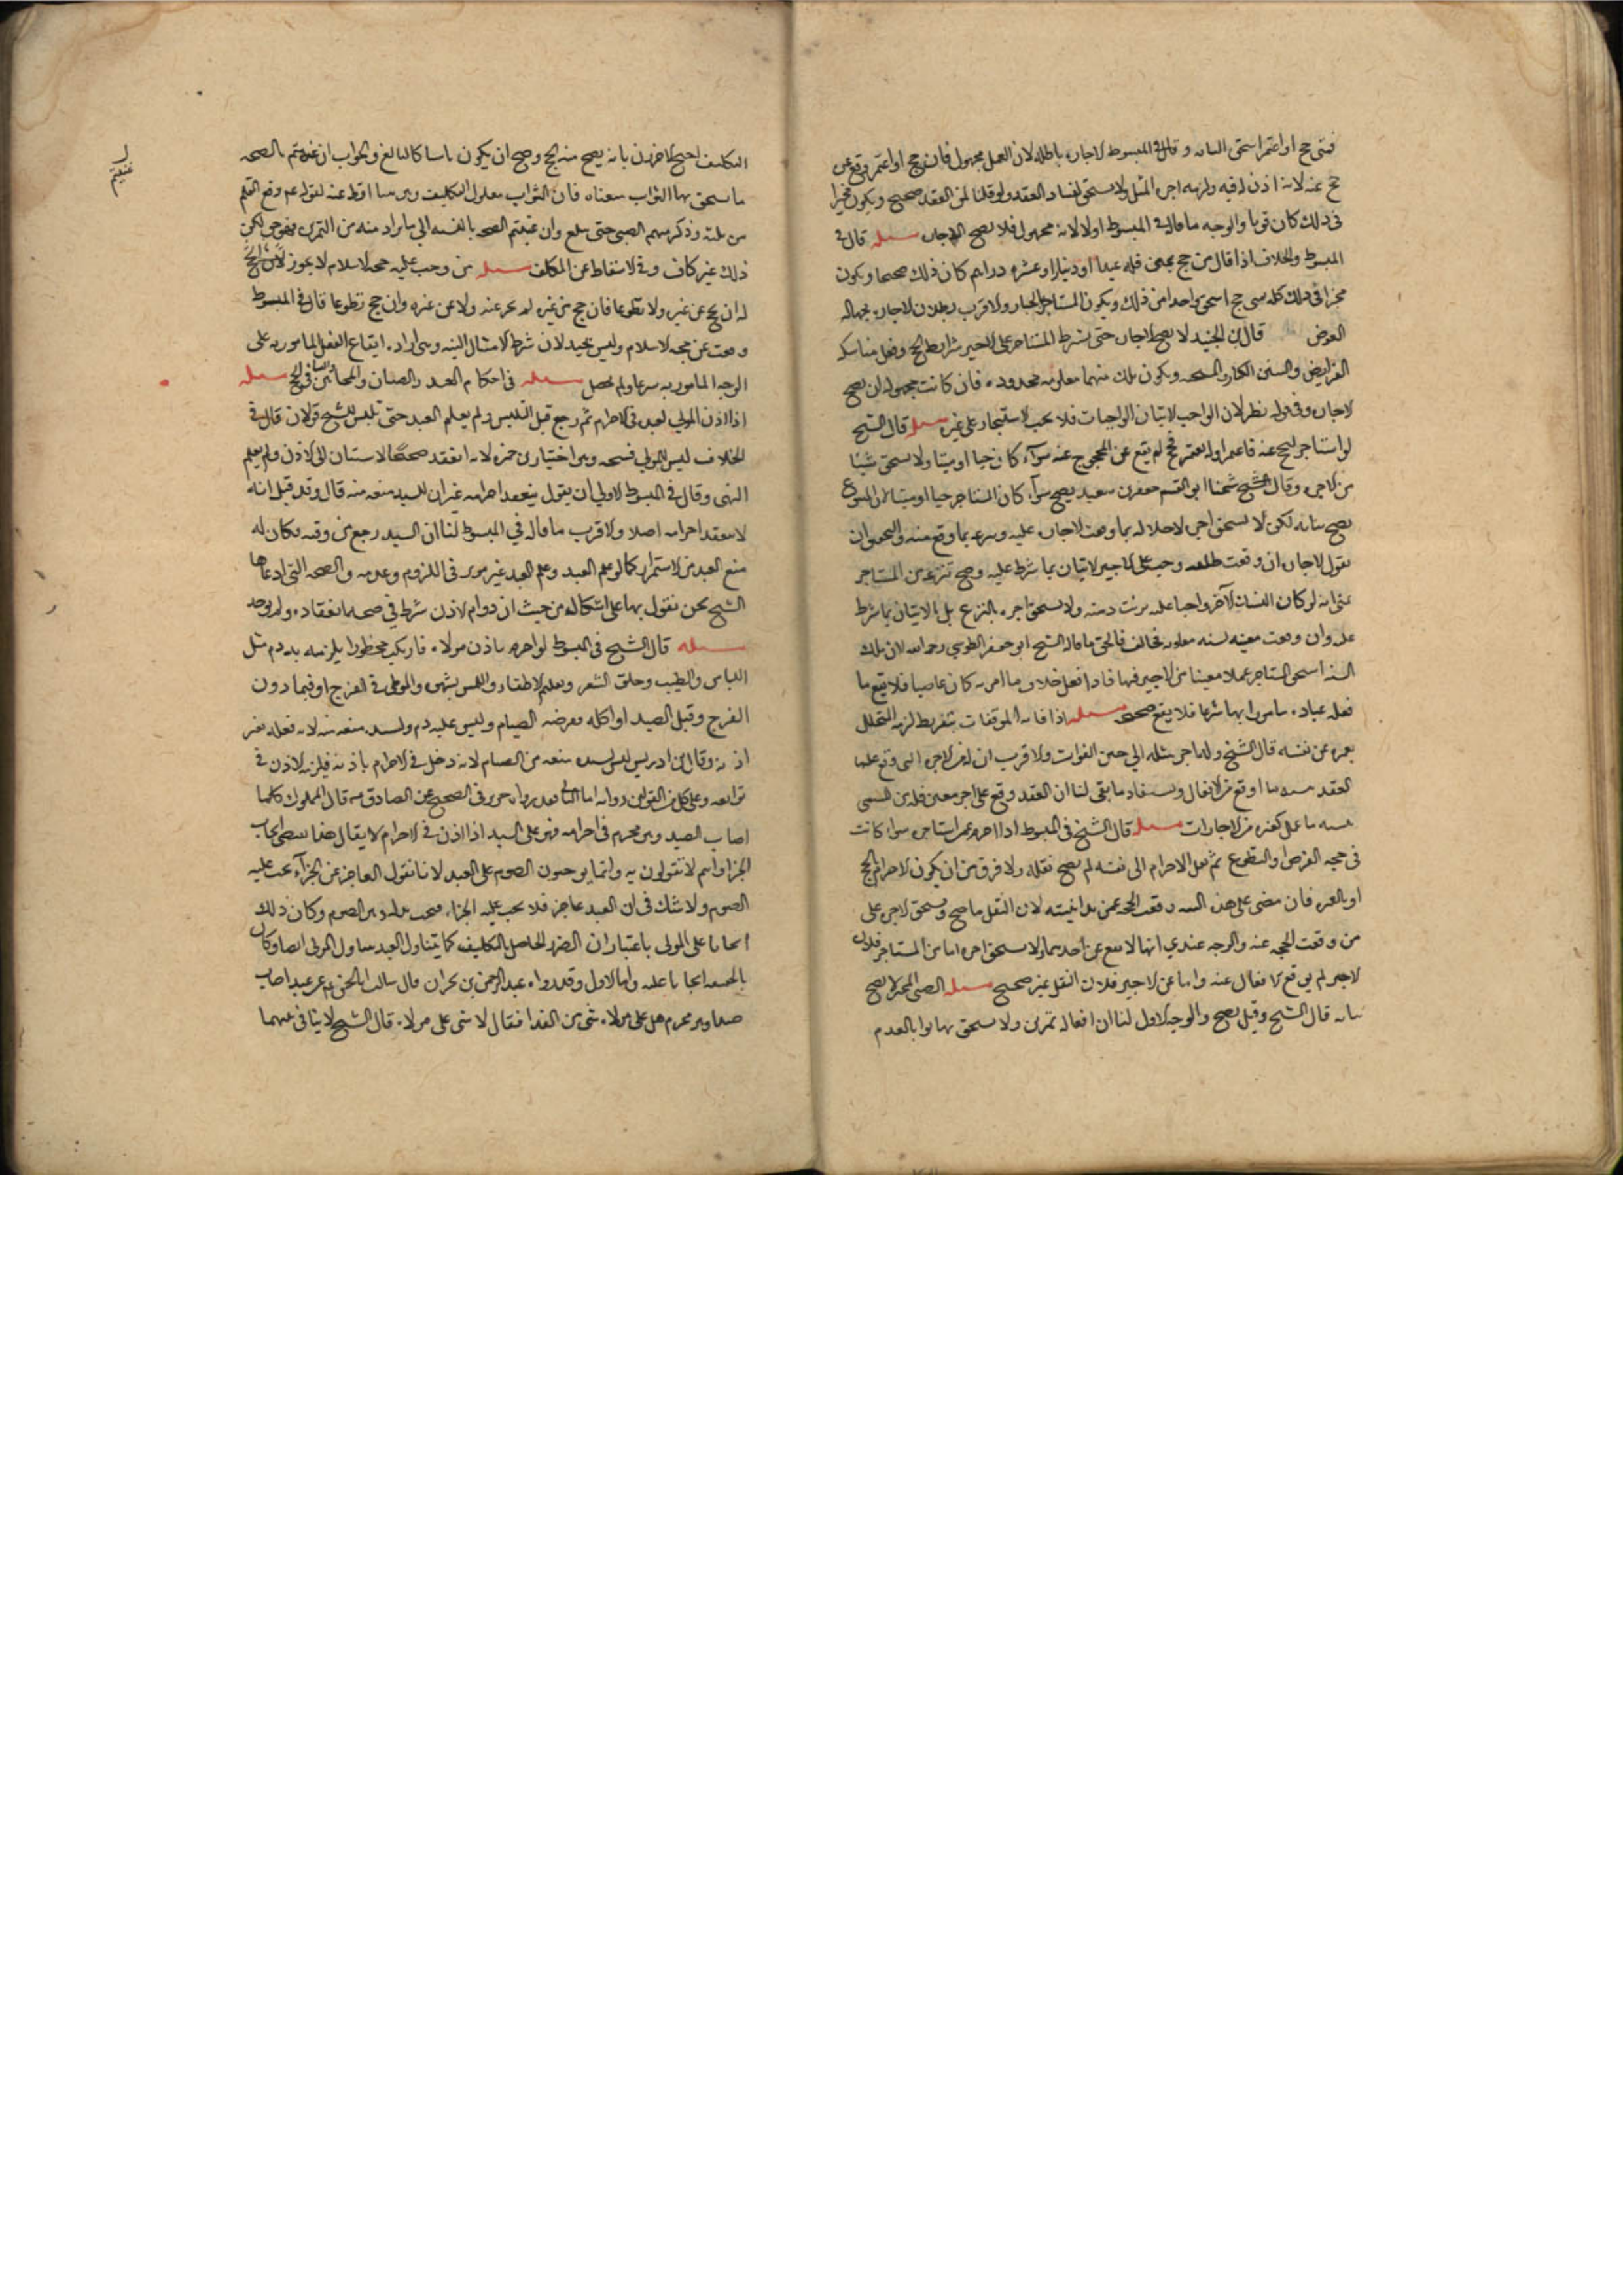 فمتى حج او اعتمر استحق المائه و قال في المبسوط الاجاره باطله لان العمل مجهول فان حج او اعتمر وقع عن
حج عنه لانه اذن له فيه ولزمه اجره المثل ولا يستحق لفساد العقد ولو قلنا ان العقد صحيح ويكون مخيرا
في ذلك كان قويا والوجه ما قاله في المبسوط اولا لانه مجهول فلا يصح الاجاره مسله قال في
المبسوط والخلاف اذا قال من حج عني فله عبد او دينار او عشره دراهم كان ذلك صحيحا ويكون
مخيرا في ذلك كله متى حج استحق واحدا من ذلك ويكون المستاجر بالخيار والاقرب بطلان الاجاره لجهاله
العوض قال ابن الجنيد لا يصح الاجاره حتى يشترط المستاجر على الاجير شرايط الحج وفعل مناسكه
الفرايض والسنن ويكون تلك منهما معلومه محدوده فان كانت مجهوله لن يصح
الاجاره وفي قوله نظر لان الواجب الاتيان بالواجبات فلا يجب الاستيجار على غيره مسله قال الشيخ
لو استاجر ليحج عنه فاعتمر او ليعتمر فحج لم يقع عن المحجوج عنه سوآء كان حيا او ميتا ولا يستحق شيئا
من الاجره وقال شيخنا ابو القسم جعفر بن سعيد يصح سوآء كان المستاجر حيا او ميتا
يصح لكن لا يستحق اجره لاخلاله بما وقعت الاجاره عليه وتبرعه بما وقع منه والتحقيق ان
نقول الاجاره ان وقعت مطلقه وجب على الاجير الاتيان بما شرط عليه وصح تبرعه عن المستاجر
بمعنى انه لو كان النسك الآخر واجبا عليه برئت ذمته ولا يستحق اجره بالتبرع بل بالاتيان بما شرط
عليه وان وقعت معينه لسنه معلومه فخالف فالحق ما قاله الشيخ ابو جعفر الطوسي رحمه الله لان تلك
السنه استحق المستاجر عملا معينا من الاجير فيها فاذا فعل خلاف ما امر به كان عاصيا فلا يقع ما
فعله عباده مامورا بها شرعا فلا يقع صحيحه مسله اذا فاته الموقفات بتفريط لزمه التحلل
بعمره عن نفسه قال الشيخ وله اجره مثله الي حين الفوات والاقرب ان له من الاجره التي وقع عليها
العقد بنسبه ما اوقع من الافعال ويستعاد ما بقي لنا ان العقد وقع على اجر معين فله من المسمى
بنسبه ما عمل كغيره من الاجارات مسله قال الشيخ في المبسوط اذا احرم عمن استاجره سواء كانت
في حجه الفرض او التطوع ثم نقل الاحرام الى نفسه لم يصح نقله ولا فرق بين ان يكون الاحرام بالحج
او بالعمره فان مضى على هذه النيه وقعت الحجه عمن بدا بنيته لان النقل ما صح ويستحق الاجره على
من وقعت الحجه عنه والوجه عندي انها لا تقع عن احدهما ولا يستحق اجره اما عن المستاجر فلان
الاجير لم يوقع الافعال عنه واما عن الاجير فلان النقل غير صحيح مسله الصبي المميز لا يصح
نيابته قال الشيخ وقيل يصح والوجه الاول لنا ان افعاله تمرين ولا يستحق بها ثوابا لعدم
التكليف احتج الاخرون بانه يصح منه الحج وصح ان يكون نايبا كالبالغ والجواب ان عنيتم بالصحه
ما يستحق بها الثواب منعناه فان الثواب معلول التكليف وهو هنا ساقط عنه لقوله عم رفع القلم
عن ثلثه وذكر منهم الصبي حتى يبلغ وان عنيتم الصحه بالنسبه الي ما يراد منه من التمرين فهو حق لكن
ذلك غير كاف في الاسقاط عن المكلف مسله من وجب عليه حجه الاسلام لا يجوز
له ان يحج عن غيره ولا تطوعا فان حج عن غيره لم يجز عنه ولا عن غيره وان حج تطوعا قال في المبسوط
وقعت عن حجه الاسلام وليس بجيد لان شرط الامتثال النيه وهي اراده ايقاع الفعل المامور به على
الوجه المامور به شرعا ولم يحصل مسله في احكام العبيد والصبيان والمجانين والنسا في الحج مسله
اذا اذن المولي لعبده في الاحرام ثم رجع قبل التلبس ولم يعلم العبد حتى تلبس للشيخ قولان قال في
الخلاف ليس للمولي فسخه وهو اختيار ابن حمزه لانه انعقد صحيحا لاستناده الى الاذن ولم يعلم
النهي وقال في المبسوط الاولي ان يقول ينعقد احرامه غير ان للسيد منعه منه قال وقد قيل انه
لا ينعقد احرامه اصلا والاقرب ما قاله في المبسوط لنا ان السيد رجع في وقته فكان له
منع العبد من الاستمرار كما لو علم العبد وعلم العبد غير موثر في اللزوم وعدمه والصحه التي ادعاها
الشيخ نحن نقول بها على اشكال من حيث ان دوام الاذن شرط في صحه انعقاده ولم يوجد
مسله قال الشيخ في المبسوط لو احرم باذن مولاه فارتكب محظورا يلزمه به دم مثل
اللباس والطيب وحلق الشعر وتقليم الاظفار واللمس بشهوه والوطي في الفرج او فيما دون
الفرج وقتل الصيد او اكله ففرضه الصيام وليس عليه دم ولسيده منعه منه لانه فعله بغير
اذنه وقال ابن ادريس ليس لسيده منعه من الصيام لانه دخل في الاحرام باذنه فيلزمه الاذن في
توابعه وعلى كل من القولين روايه اما الثاني فقد رواه حريز في الصحيح عن الصادق عم قال المملوك كلما
اصاب الصيد وهو محرم في احرامه فهو على السيد اذا اذن له في الاحرام لا يقال هذا يقتضي ايجاب
الجزا وانتم لا تقولون به وانما توجبون الصوم على العبد لانا نقول العاجز عن الجزآء يجب عليه
الصوم ولا شك في ان العبد عاجز فلا يجب عليه الجزاء فيجب بدله وهو الصوم وكان ذلك
ايجابا على المولى باعتبار ان الضرر الحاصل بالتكليف كما يتناول العبد يتناول المولى ايضا وكان
بالحقيقه ايجابا عليه واما الاول وقد رواه عبد الرحمن بن نجران قال سالت ابا الحسن عم عن عبد اصاب
صيدا وهو محرم هل على مولاه شي من الفدا فقال لا شي على مولاه قال الشيخ لا ينافي بينهما